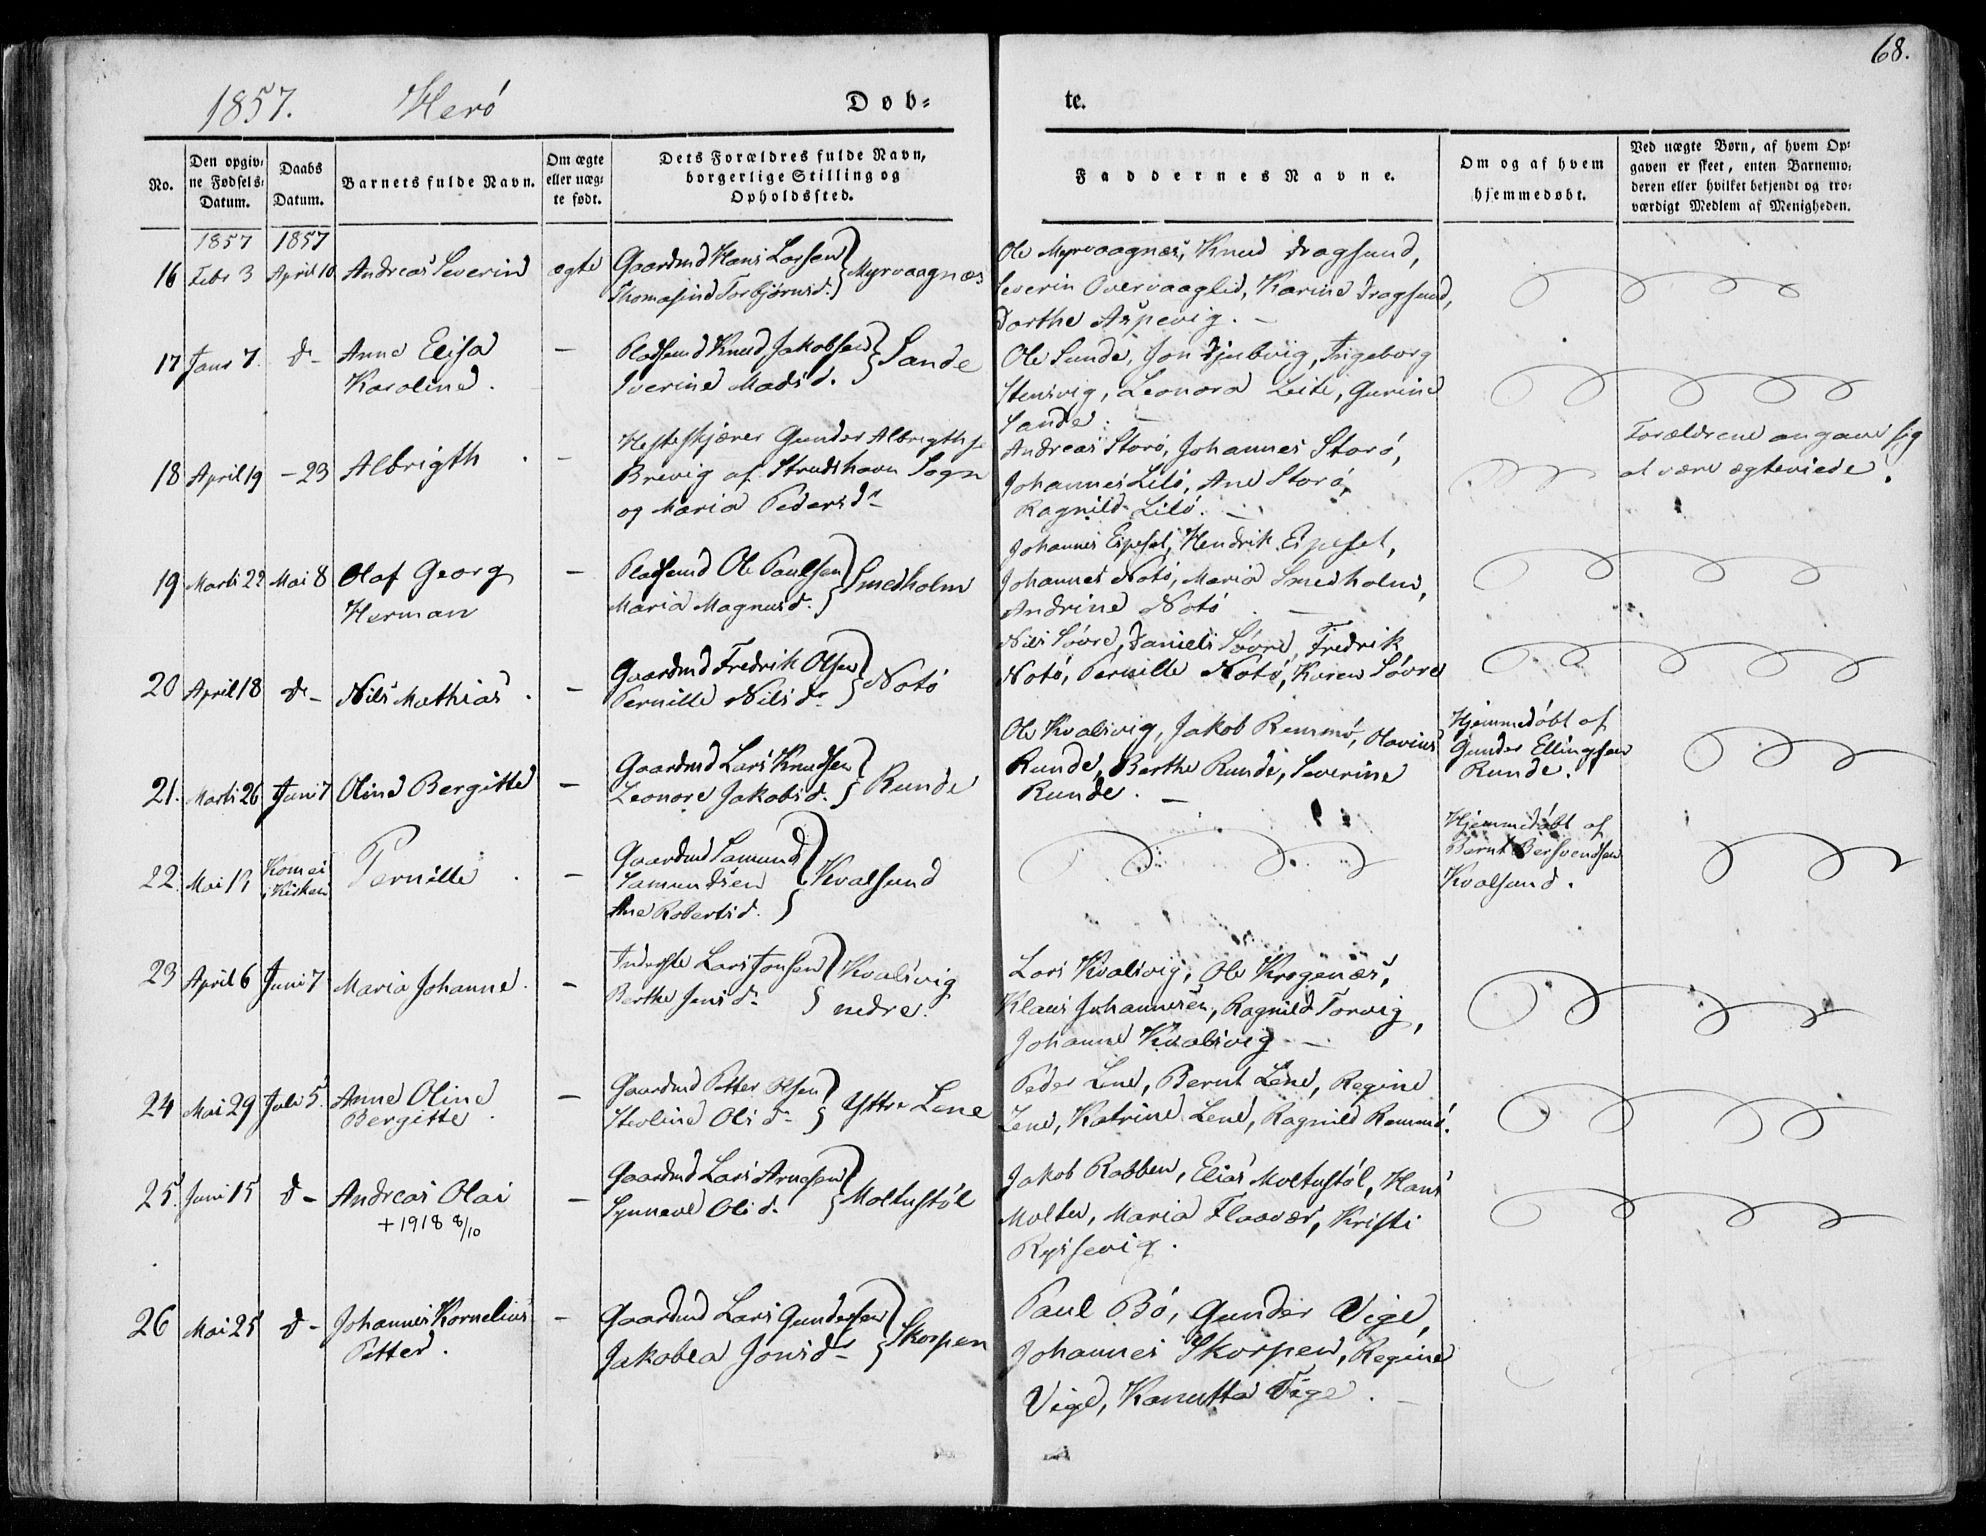 68.
1857. Herö Döb= te.
No.
Den opgiv=
ne Fødsels=
Datum.
Daabs
Datum.
Barnets fulde Navn.
Om ægte
eller uæg=
te født.
Dets Forældres fulde Navn,
borgerlige Stilling og
Opholdssted.
Faddernes Navne.
Om og af hvem
hjemmedøbt.
Ved uægte Børn, af hvem Op=
gaven er skeet, enten Barnemo=
deren eller hvilket bekjendt og tro=
værdigt Medlem af Menigheden.
1857 1857
16 Febr 3 April 10 Andreas Severin ægte
Gaardmd Hans Larsen
Thomasine Torbjørnsd. } Myrvaagnæs
Ole Myrvaagnæs, Knud Dragsund,
Severin Overvaaglid, Karine Dragsund,
Dorthe Aspevig. –
17 Janr 7. do– Anne Elisa
Karoline. –
Pladsmd Knud Jakobsen
Iverine Madsd. } Sande
Ole Sunde, Jon Djubvig, Ingeborg
Stensvig, Leonora Leite, Gurine
Sande. –
18 April 19 – 23 Albrigth. –
Hesteskjærer Gunder Albrigths.
Brevig af Strudshavn Sogn
og Maria Pedersdr
Andreas Storö, Johannes Storö,
Johannes Lilö, Ane Storö,
Ragnild Lilö. –
Forældrene angave sig
at være ægteviede.
19 Marti 22 Mai 8 Olaf Georg
Herman –
Pladsmd Ole Paulsen
Maria Magnusd. } Smedholm
Johannes Espeset, Hendrik Espeset,
Johannes Notö, Maria Smedholm,
Andrine Notö. –
20 April 18 do– Nils Mathias. –
Gaardmd Fredrik Olsen
Pernille Nilsdr } Notö
Nils Sövre, Daniels Sövre, Fredrik
Notö, Pernille Notö, Karen Sövre
21. Marti 26 Juni 7 Oline Bergitte –
Gaardmd Lars Knudsen
Leonore Jakobsd. } Runde
Ole Kvalsvig, Jakob Remmö, Olavius
Runde, Berthe Runde, Severine
Runde. –
Hjemmedöbt af
Gunder Ellingsen
Runde.
22. Mai 13 Kom ei
i Kirken
Pernille. –
Gaardmd Samund
Samundsen
Ane Robertsd. } Kvalsund
Hjemmedöbt af
Bernt Bersvendsen
Kvalsund.
23 April 6 Juni 7 Maria Johanne. –
Inderste Lars Jonsen
Berthe Jensdr } Kvalsvig
nedre.
Lars Kvalsvig, Ole Krogenæs,
Klaus Johannesen, Ragnild Torvig,
Johanne Kvalsvig –
24 Mai 29 Juli 5. Anne Oline
Bergitte. –
Gaardmd Petter Olsen
Olsdr } Yttre Lene
Peder Lene, Bernt Lene, Regine
Lene, Katrine Lene, Ragnild Remmö.
25. Juni 15 do– Andreas Olai –
+ 1918 8/10
Gaardmd Lars Arnesen
Synneve Olsd. } Moltustöl
Jakob Rabben, Elias Moltustöl, Hans
Moltu, Maria Flaavær, Kristi
Rysevig.
26 Mai 25 do– Johannes Kornelius
Petter. –
Gaardmd Lars Gundersen
Jakobea Jonsdr } Skorpen
Paul Bö, Gunder Vige,
Johannes Skorpen, Regine
Vige, Kanutta Vige. –